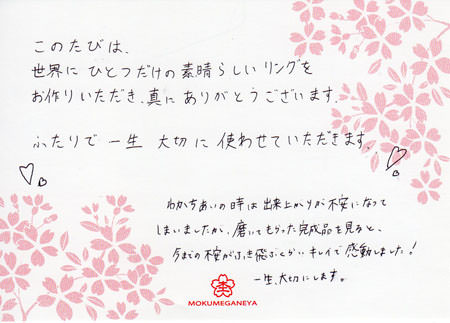 このたびは、
世界にひとつだけの素晴らしいリングを
お作りいただき、真にありがとうございます。
ふたりで一生 大切に使わせていただきます。
わかちあいの時は出来上がりが不安になって
しまいましたが、磨いてもらった完成品を見ると、
今までの不安がふき飛ぶくらいキレイで感動しました!
一生、大切にします。
MOKUMEGANEYA